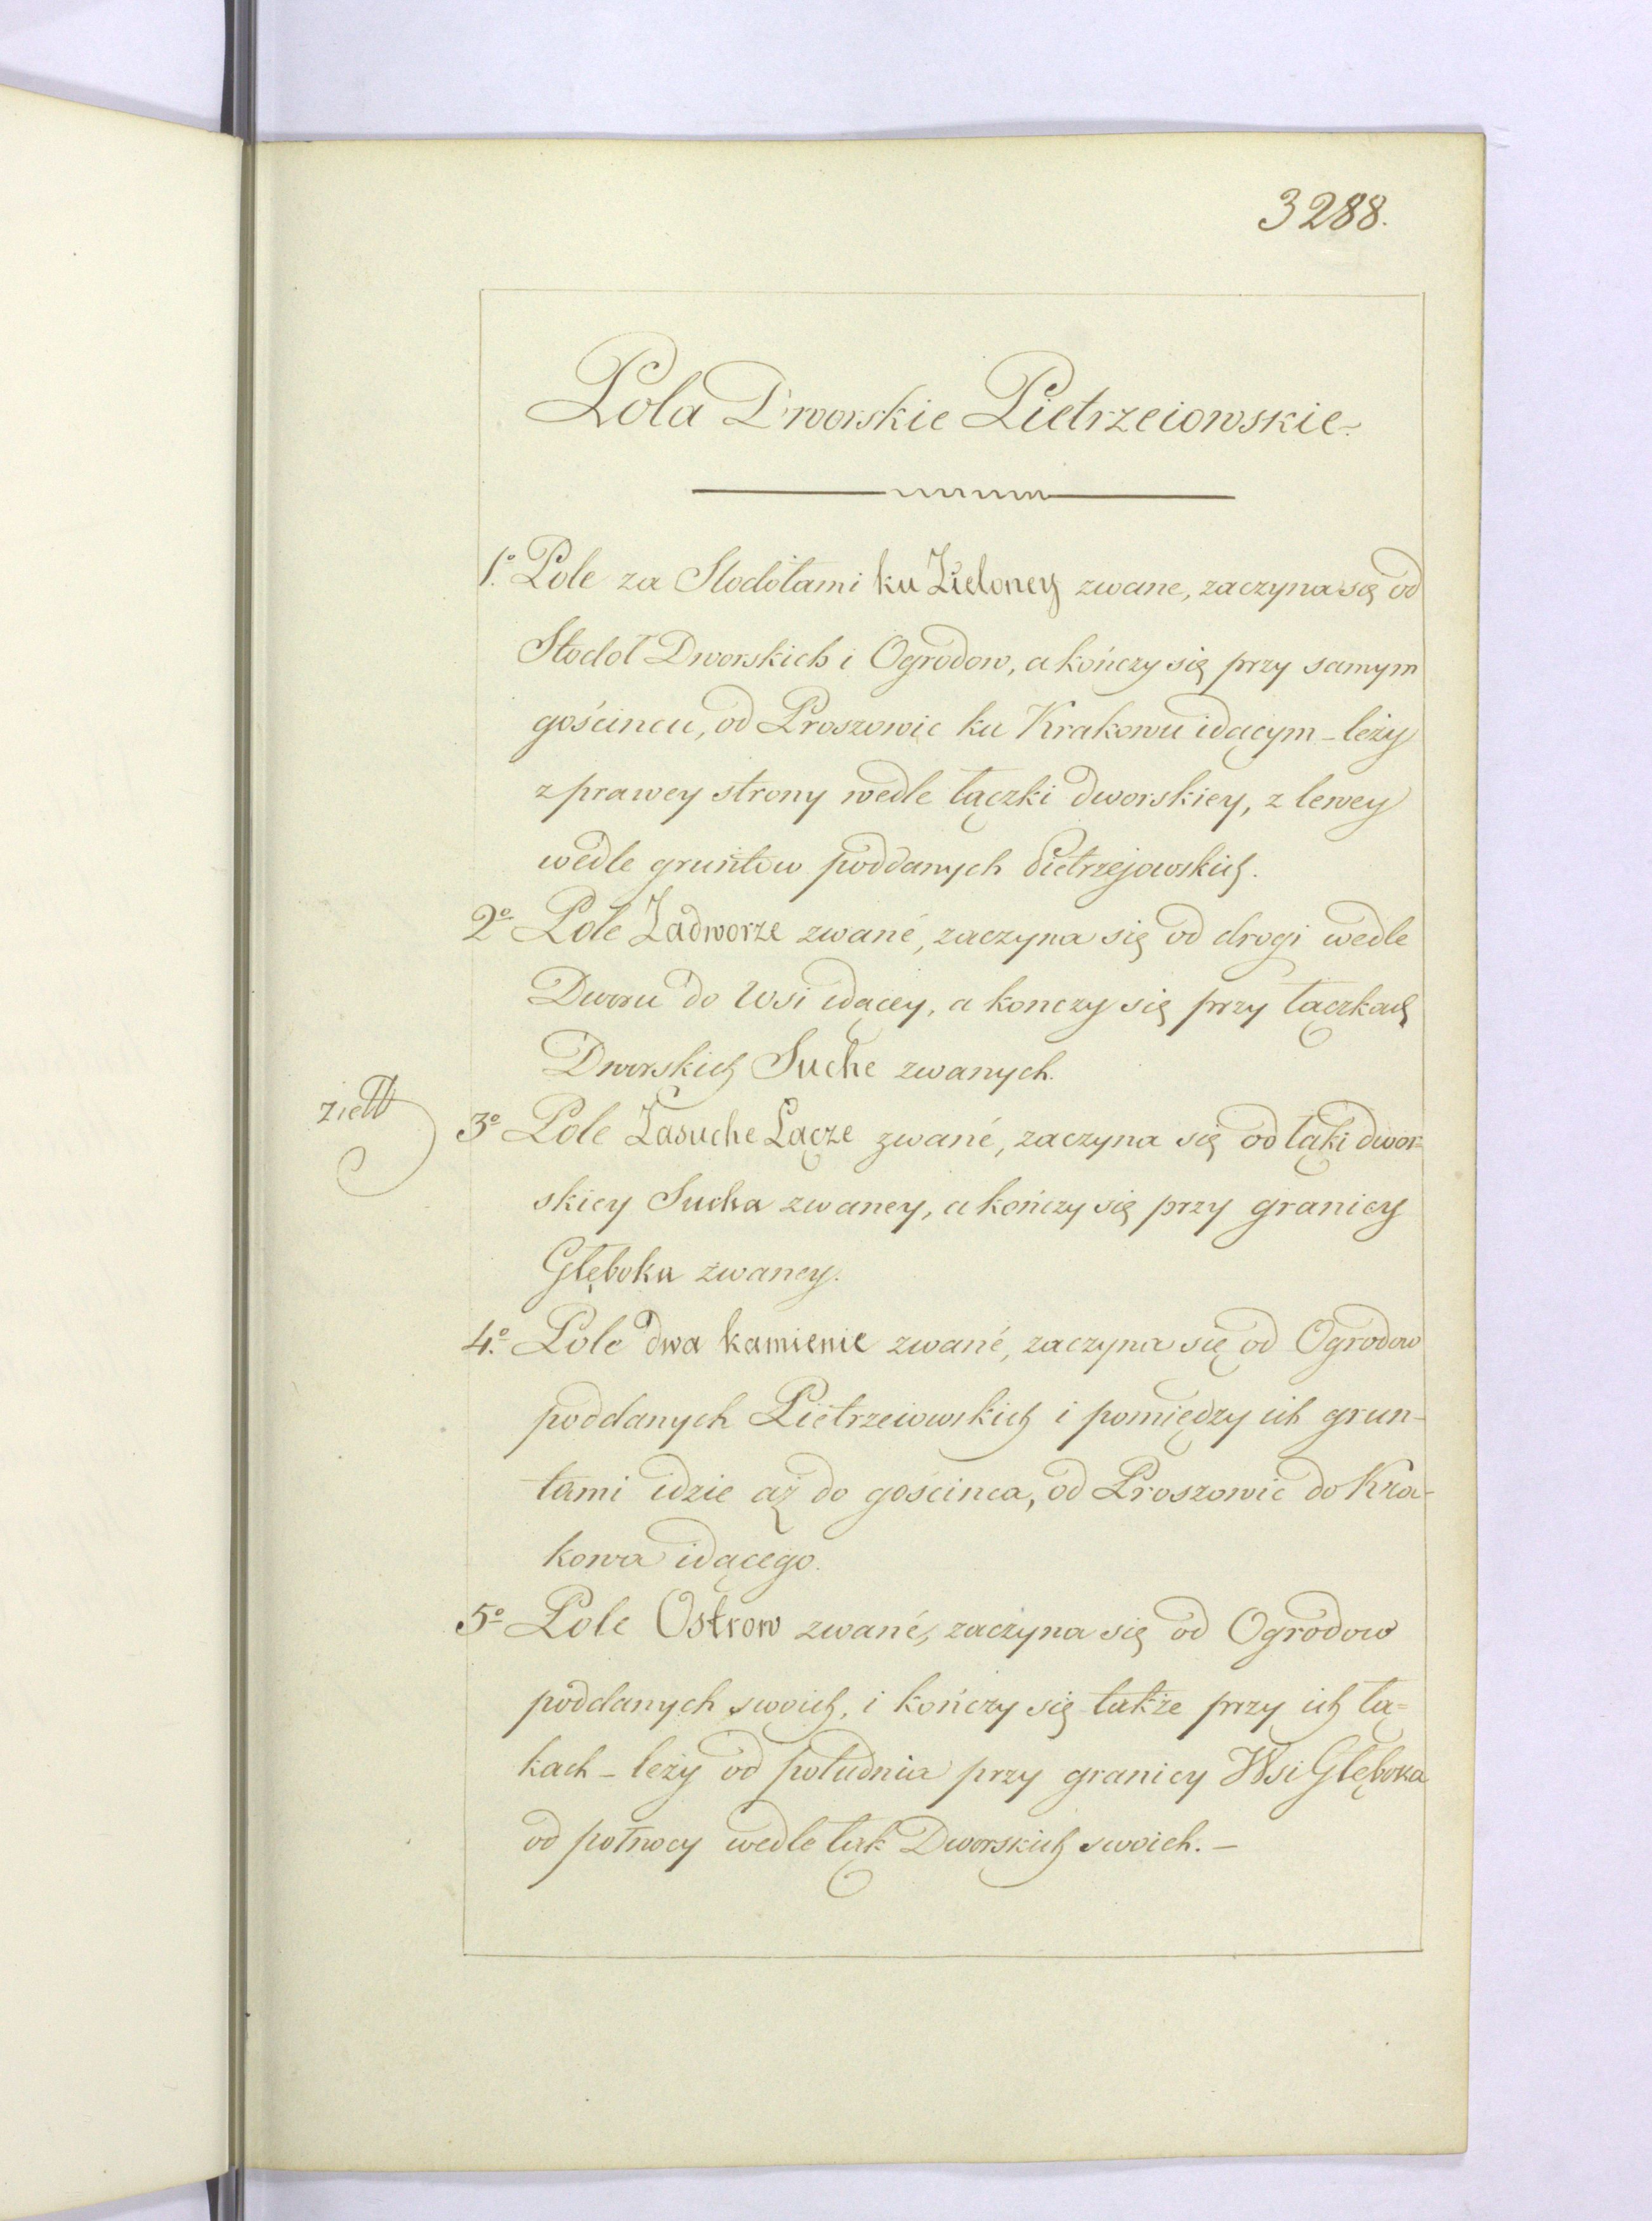 3288.
Pola Dworskie Pietrzeiowskie.
1.o Pole za Stodołami ku Zieloney zwane, zaczyna się od
Stodoł Dworskich i Ogrodow, a kończy się przy samym
gościncu, od Proszowic ku Krakowu idącym – leży
z prawey strony wedle łączki dworskiey, z lewey
wedle gruntów poddanych Pietrzejowskich.
2.o Pole Zadworze zwané, zaczyna się od drogi wedle
Dworu do Wsi idącey, a konczy się przy łączkach
Dworskich Suche zwanych.
3.o Pole Zasuche Łącze zwané, zaczyna się od łąki dwor=
skiey Sucha zwaney, a kończy się przy granicy
Głęboka zwaney.
4.o Pole dwa kamienie zwané, zaczyna się od Ogrodow
poddanych Pietrzeiowskich i pomiędzy ich grun-
tami idzie aż do gościnca, od Proszowic do Kra-
kowa idącego.
5.o Pole Ostrow zwané, zaczyna się od Ogrodow
poddanych swoich, i kończy się także przy ich łą=
kach – leży od południa przy granicy Wsi Głęboka
od połnocy wedle łąk Dworskich swoich. –